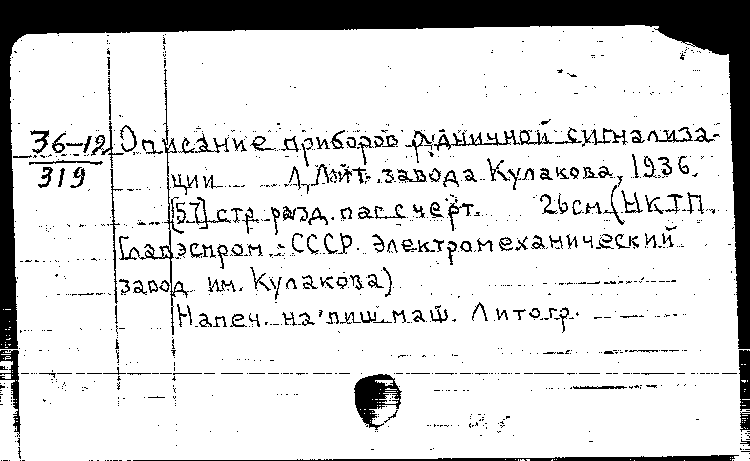 36-12 Описание приборов рудничной сигнализа-
319 ции Л, Лит. завода Кулакова, 1936.
[57] стр. разд. паг. с черт. 26 см. (НКТП.
Главэспром. - СССР. Электромеханический
завод им. Кулакова)
Напеч. на пиш. маш. Литогр.